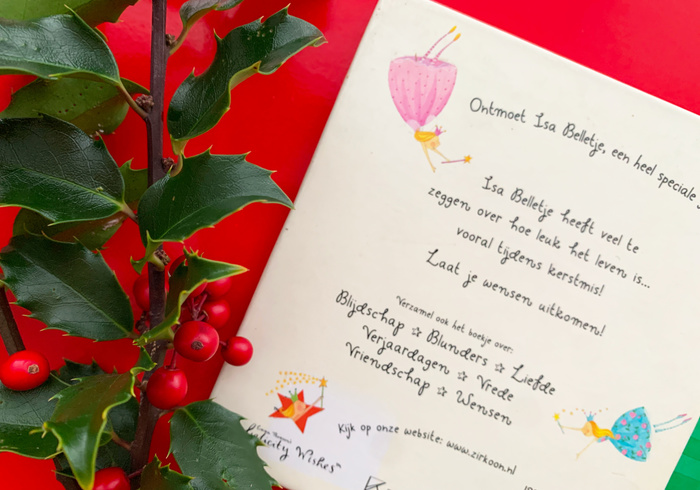 Ontmoet Isa Belletje, een heel speciale
Isa Belletje heeft veel te
zeggen over hoe leuk het leven is...
vooral tijdens kerstmis!
Laat je wensen uitkomen!
"Verzamel ook het boekje over:
Blijdschap ☆ Blunders ☆ Liefde
Verjaardagen ☆ Vrede
Vriendschap ☆ Wensen
Kijk op onze website: www.zirkoon.nl
Felicity Wishes"